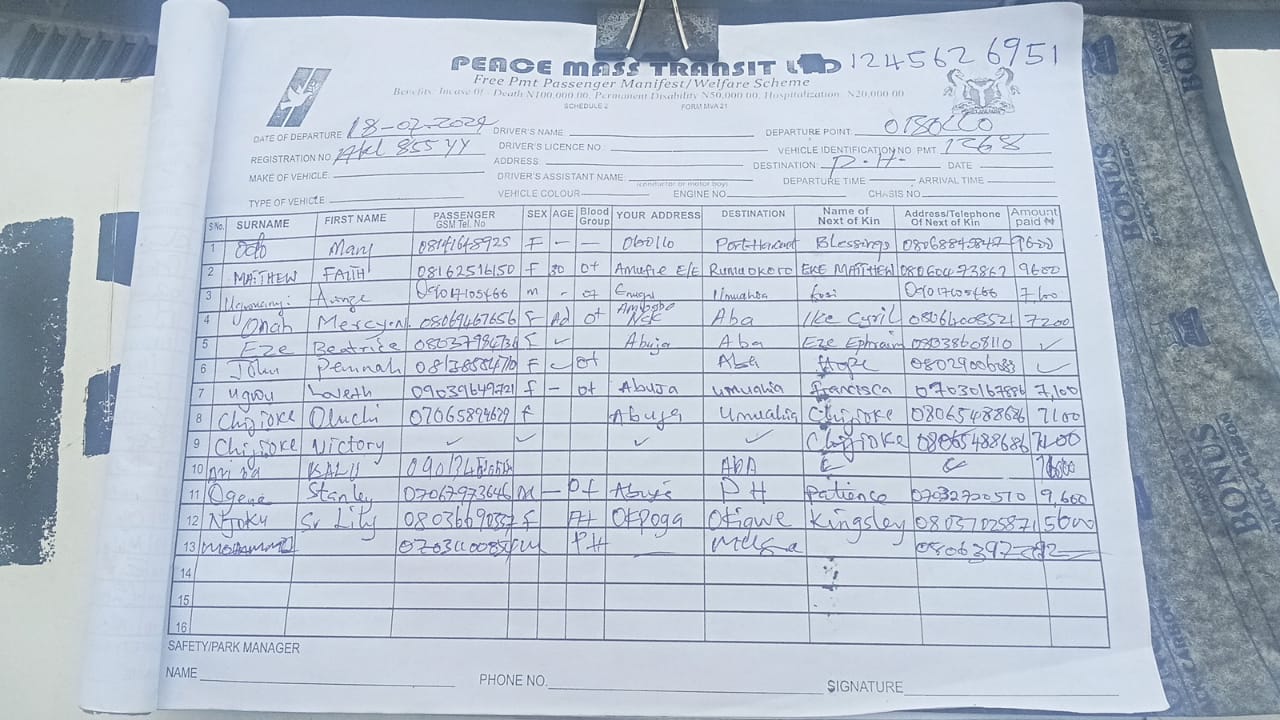 PEACE MASS TRANSIT LTD 1245626951
Free Pmt Passenger Manifest/Welfare Scheme
Benefits: Incase Of - Death N100,000.00, Permanent Disability N50,000.00, Hospitalization N20,000.00
SCHEDULE 2 FORM MVA 21
DATE OF DEPARTURE 18-02-2024 DRIVER'S NAME DEPARTURE POINT: OBOLLO
REGISTRATION NO. 855 YY DRIVER'S LICENCE NO. VEHICLE IDENTIFICATION NO. PMT. 1268
MAKE OF VEHICLE: ADDRESS: DESTINATION: P.H. DATE
DRIVER'S ASSISTANT NAME: (conductor or motor boy) DEPARTURE TIME ARRIVAL TIME
TYPE OF VEHICLE: VEHICLE COLOUR ENGINE NO. CHASIS NO.
S No. SURNAME FIRST NAME PASSENGER GSM Tel. No SEX AGE Blood Group YOUR ADDRESS DESTINATION Name of Next of Kin Address/Telephone Of Next of Kin Amount paid ₦
1 Odo Mary 08141648925 F - - Obollo Port-Harcourt Blessings 9600
2 MATTHEW FAITH 08162516150 F 30 O+ Amufie E/E Rumuokoro EKE MATTHEW 08060473862 9600
3 09017105466 m - O+ Enugu Umuahia 09017105466 7,100
4 Onah Mercy 08069467656 F Ad O+ Aba Ike Cyril 08064008521 7200
5 Eze Beatrice F ✓ Abuja Aba Eze Ephraim 08038608110 ✓
6 John Peninah F ✓ O+ Aba Hope ✓
7 Ugwu 09039649721 f - O+ Abuja Umuahia Francisca 7,100
8 Chijioke Oluchi F Abuja Umuahia Chijioke 08065488686 7100
9 Chijioke Victory ✓ ✓ ✓ ✓ Chijioke 08065488686 7100
10 KALU ABA
11 Ogene Stanley 07067973646 M - O+ Abuja PH Patience 07032720510 9,600
12 Njoku Sr Lily F Okpoga Okigwe Kingsley 08037025871 5600
13 PH Musa
14
15
16
SAFETY/PARK MANAGER
NAME PHONE NO. SIGNATURE
BONUS
BONUS
BONUS
BON